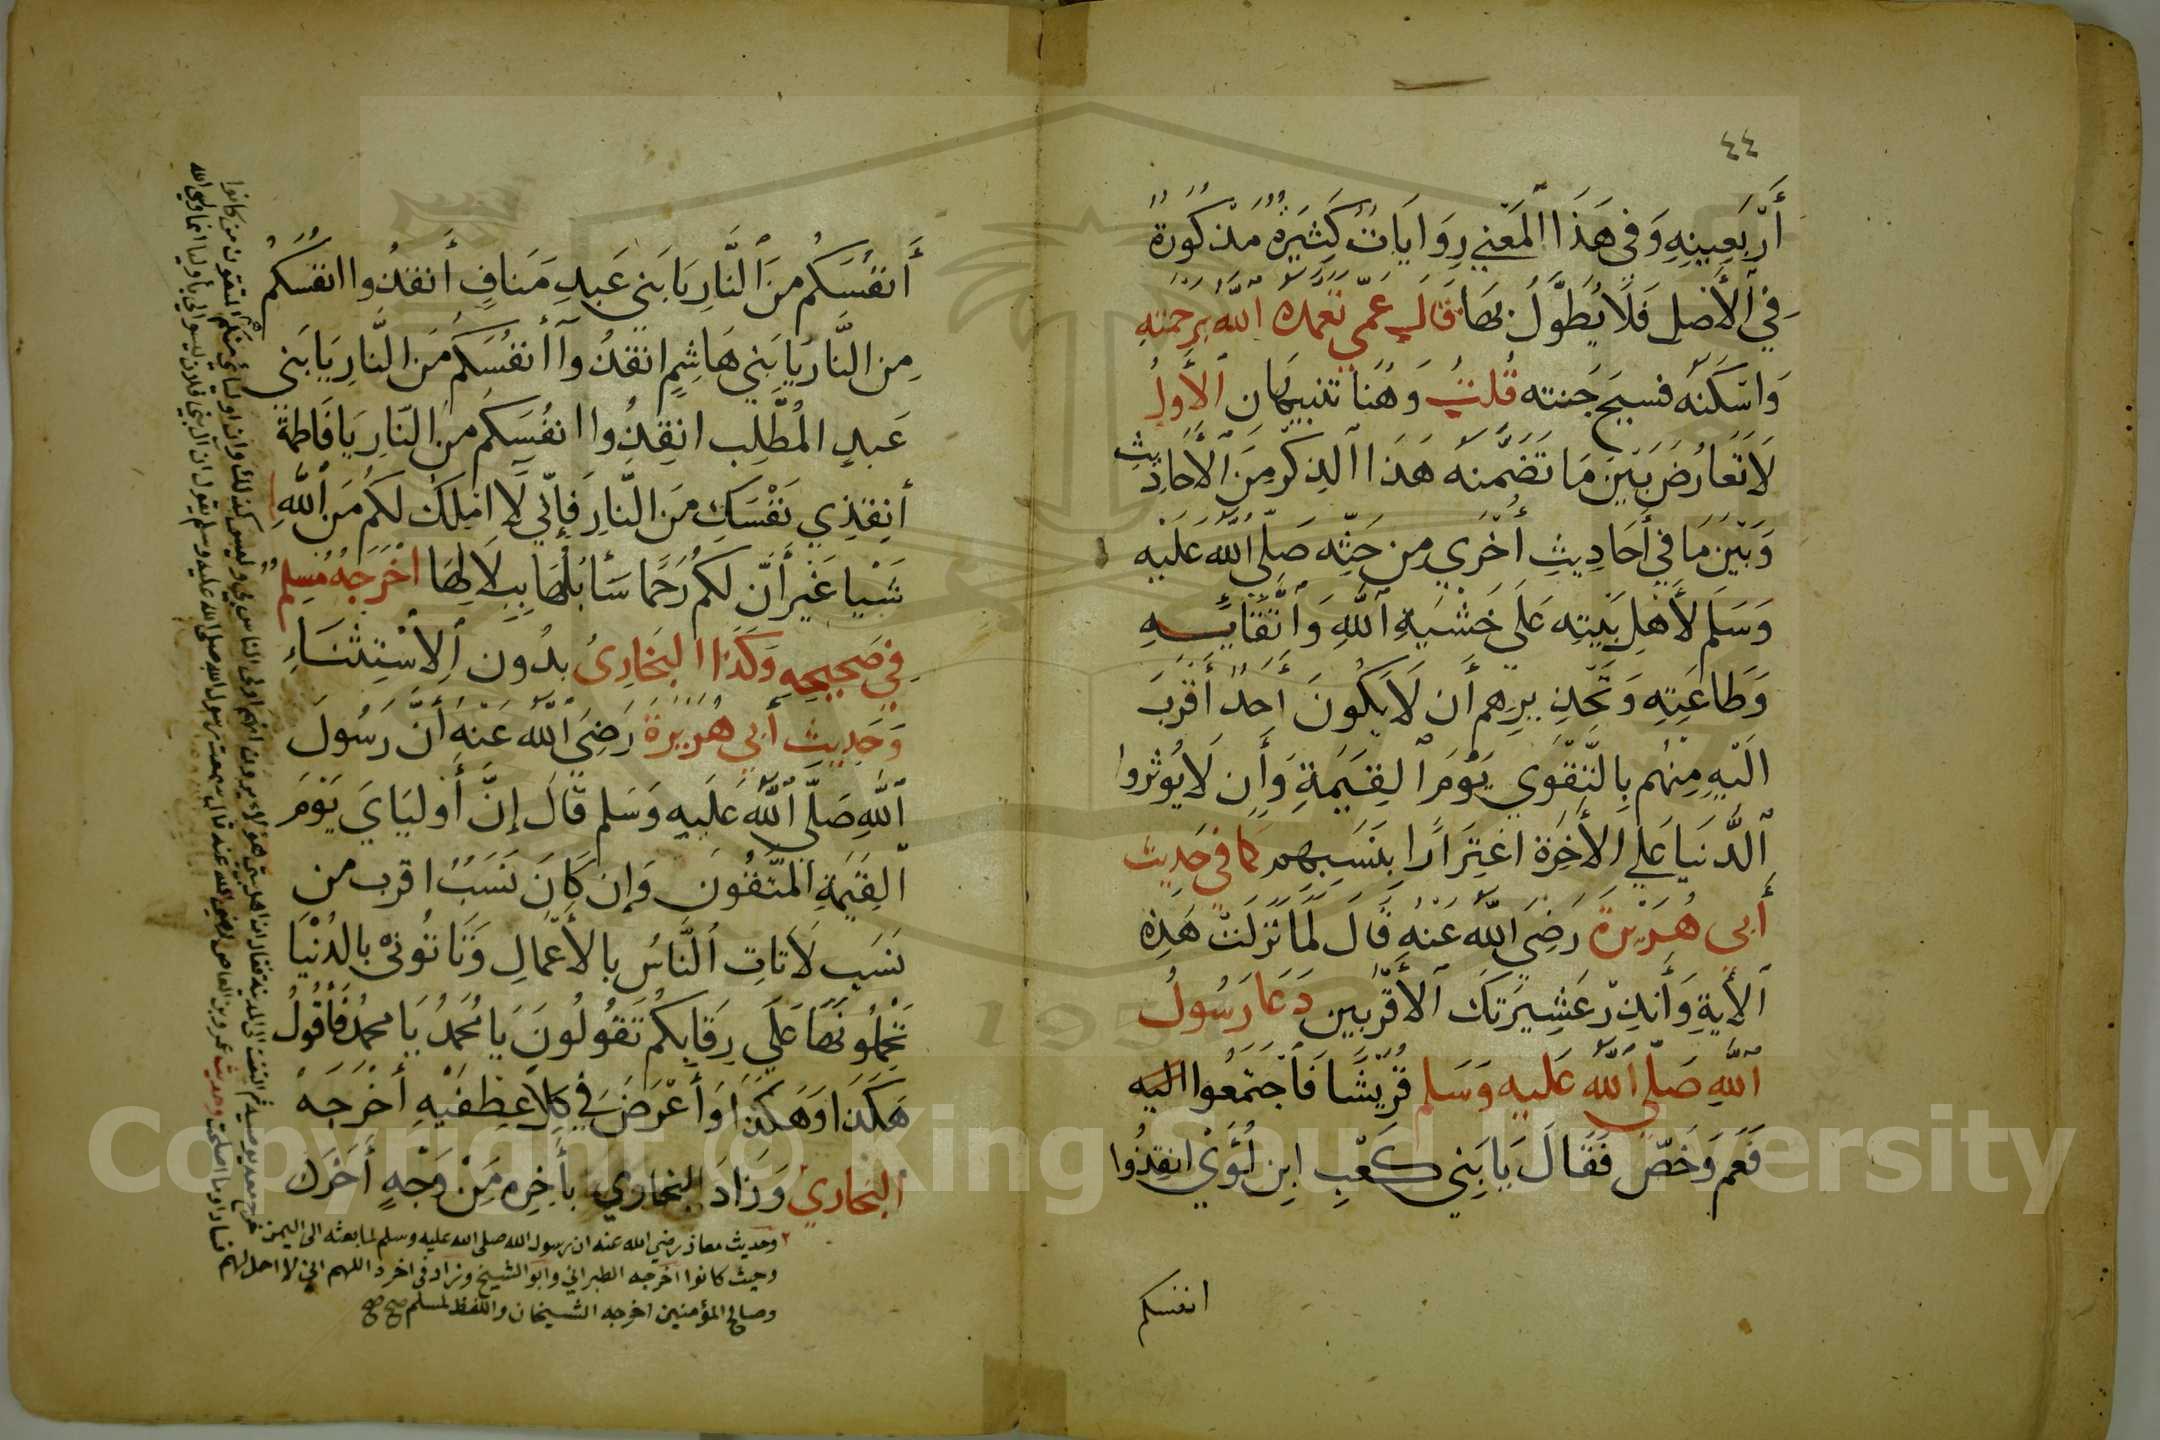 ٤٤
أربعينه وفي هذا المعني روايات كثيرة مذكورة
في الأصل فلا يطول بها قال عمي تغمده الله برحمته
واسكنه فسيح جنته قلت وهنا تنبيهان الأول
لا تعارض بين ما تضمنه هذا الذكر من الأحاديث
وبين ما في أحاديث أخري من حثه صلي الله عليه
وسلم لأهل بيته علي خشية الله واتقايه
وطاعته وتحذيرهم أن لا يكون أحد أقرب
اليه منهم بالتقوي يوم القيمة وأن لا يوثروا
الدنيا علي الأخرة اغترارا بنسبهم كما في حديث
أبي هريرة رضي الله عنه قال لما نزلت هذه
الأية وأنذر عشيرتك الأقربين دعا رسول
الله صلي الله عليه وسلم قريشا فأجتمعوا اليه
فعم وخص فقال يا بني كعب ابن لؤي انقذوا
انفسكم
أنفسكم من النار يا بني عبد مناف أنقذوا انفسكم
من النار يا بني هاشم انقذوا أنفسكم من النار يا بني
عبد المطلب انقذوا انفسكم من النار يا فاطمة
أنقذي نفسك من النار فإني لا املك لكم من الله
شيا غير أن لكم رحما سأبلها ببلالها أخرجه مسلم
في صحيحه وكذا البخاري بدون الاستثناء
وحديث أبي هريرة رضي الله عنه أن رسول
الله صلي الله عليه وسلم قال إن أوليايَ يوم
القيمة المتقون وإن كان نسب اقرب من
نسب لا تات الناس بالأعمال وتاتوني بالدنيا
تحملونها علي رقابكم تقولون يا محمد يا محمد فأقول
هكذا وهكذا وأعرض في كلا عطفيه أخرجه
البخاري وزاد البخاري بأخره من وجه أخرك
٢ وحديث معاذ رضي الله عنه ان رسول الله صلى الله عليه وسلم لما بعثه الى اليمن
خرج معه يوصيه ثم التفت الى المدينة فقال ان اهل بيتي هؤلاء يرون انهم اولى الناس بي وليس كذلك وان اوليائي منكم المتقون من كانوا
وحيث كانوا اخرجه الطبراني وابو الشيخ وزاد في اخره اللهم اني لا احل لهم
فساد ما اصلحت وحديث عمرو بن العاص رضي الله عنه قال سمعت رسول الله صلى الله عليه وسلم يقول ان آل بني فلان ليسوا لي بأوليا انما وليي الله
وصالح المؤمنين اخرجه الشيخان واللفظ لمسلم صح صح
Copyright © King Saud University